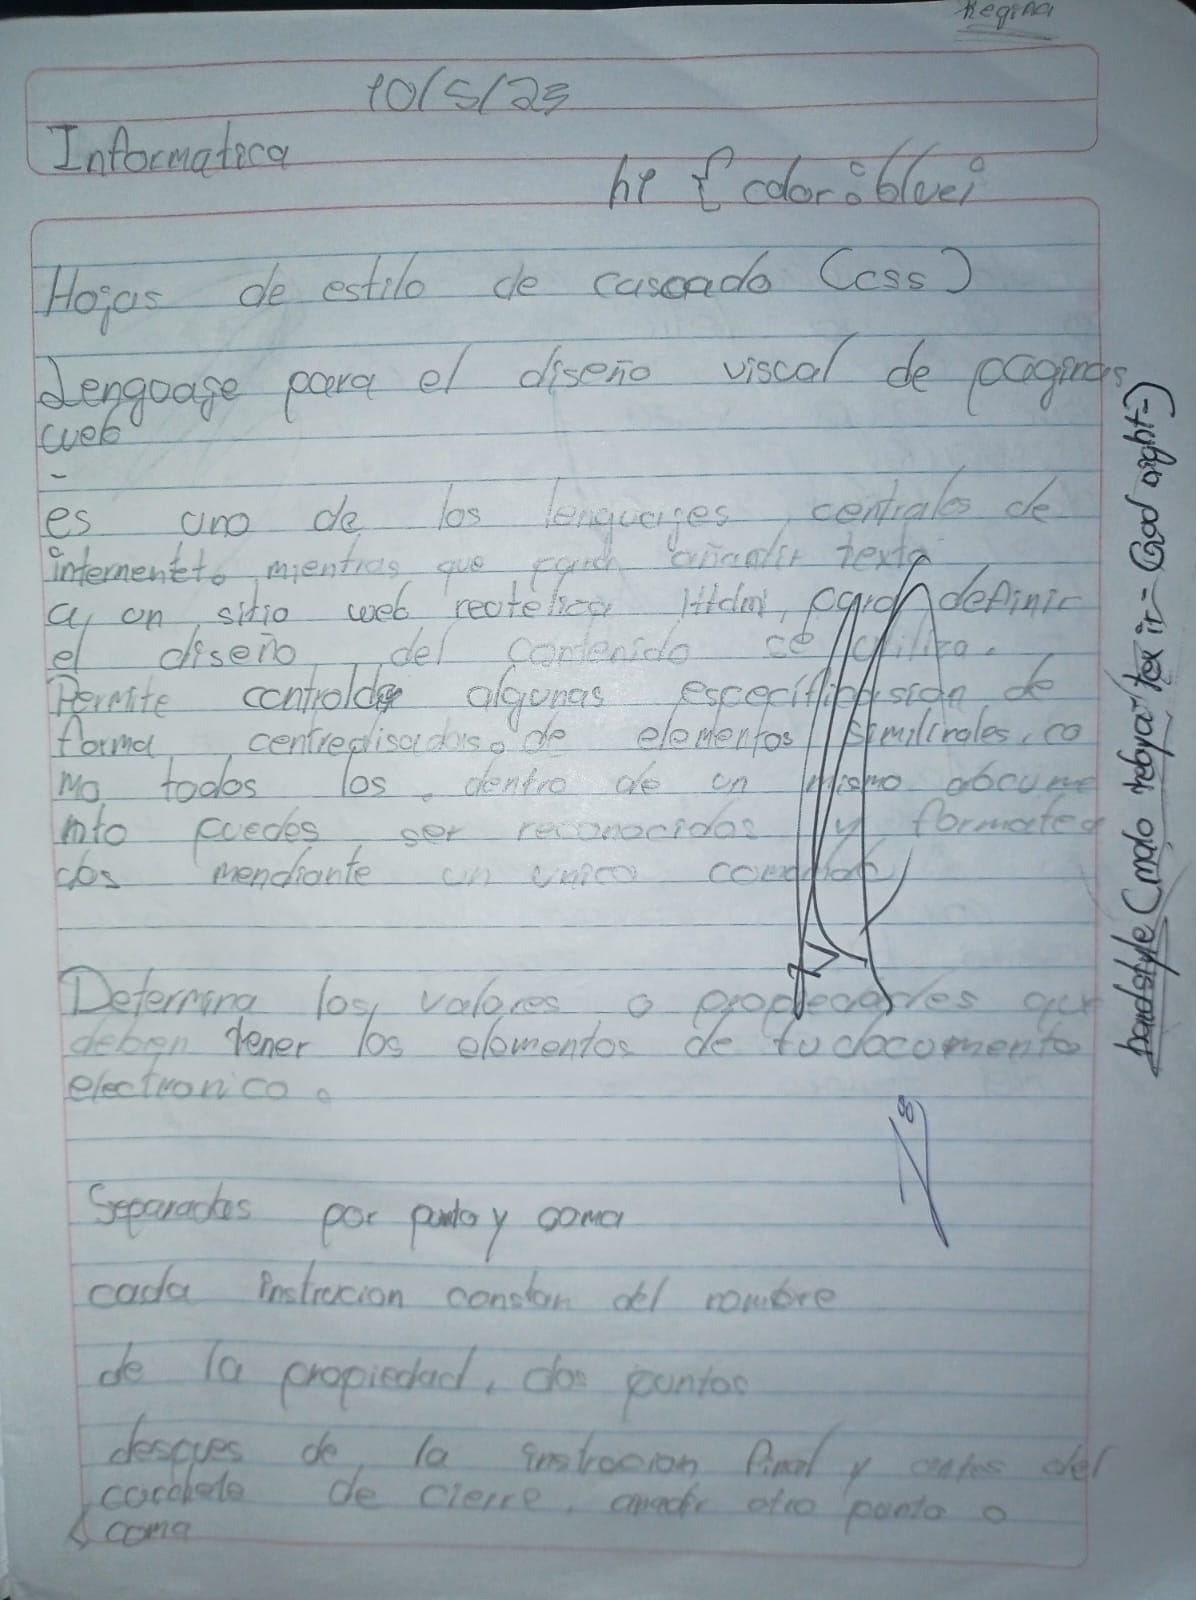 Regina
10/5/23
Informatica
h1 { color: blue;
Hojas de estilo de cascada (css)
Lenguaje para el diseño viscal de paginas
web
-
es uno de los lenguajes centrales de
mientras que para añadir texto
a un sitio web para definir
el diseño del contenido se utiliza.
Permite algunas de
forma de elementos co
mo todos los dentro de un mismo docume
nto puedes ser reconocidos y formatea
dos mendiante un unico
Determina los valores o que
deben tener los elementos de tu documento
electronico.
Separadas por punto y coma
cada instrucion constan del nombre
de la propiedad, dos puntos
despues de la instrocion final y antes del
de cierre, añadir otro punto o
coma
handstyle (malo
God night =)